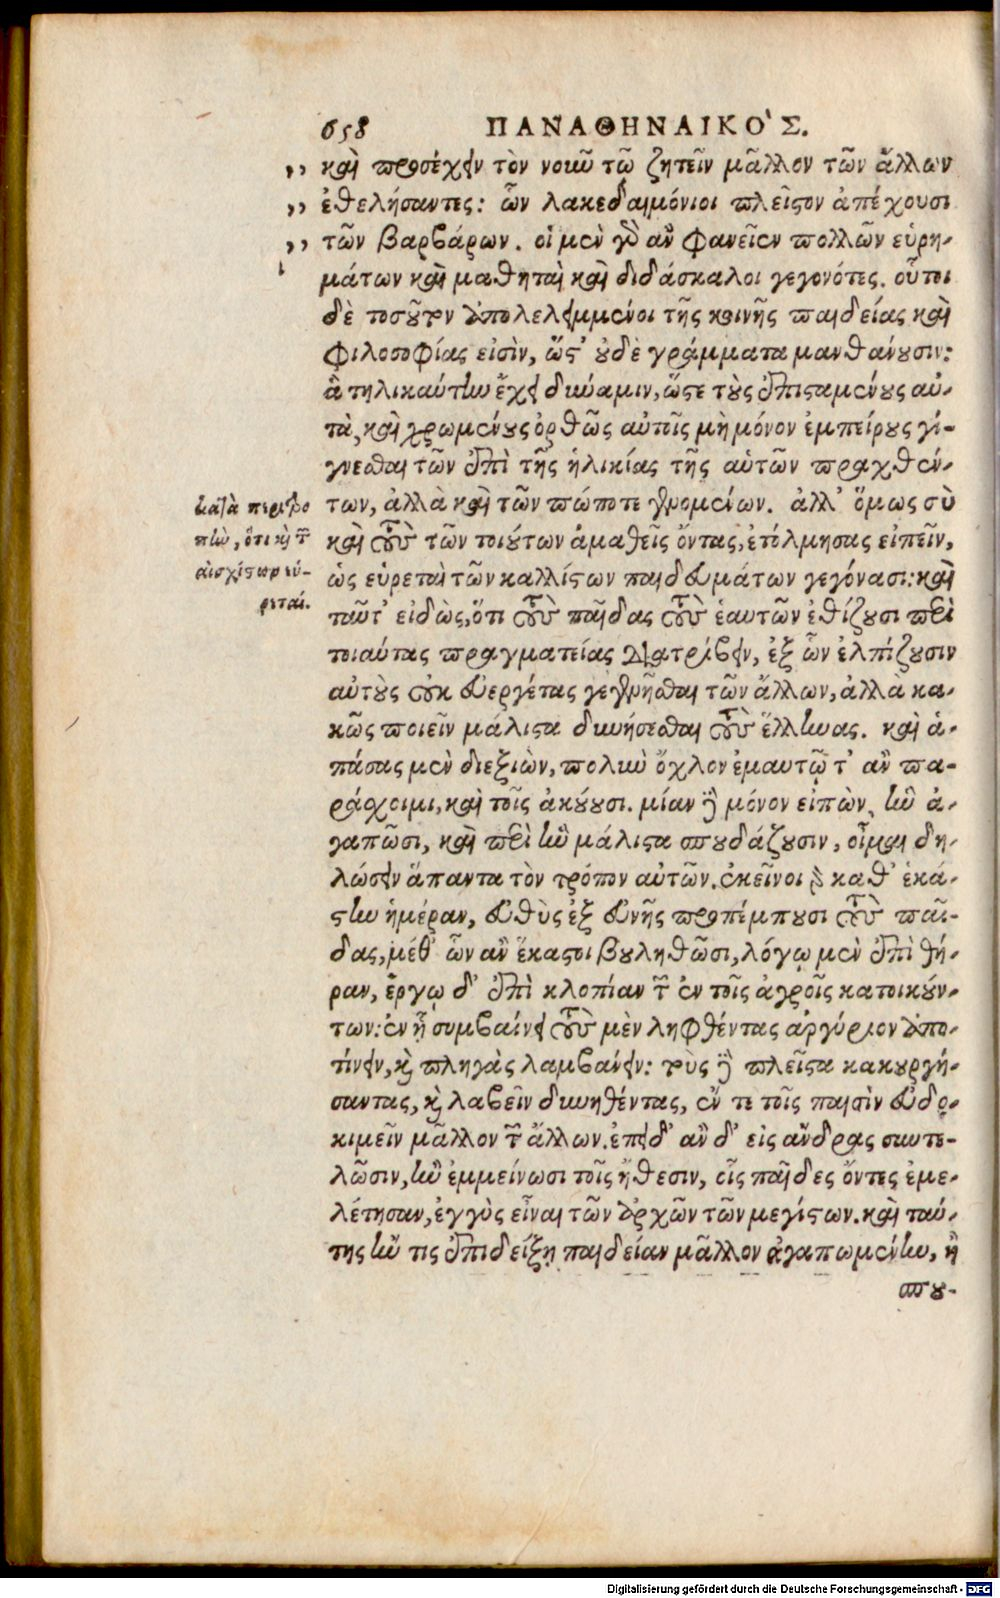 658 ΠΑΝΑΘΗΝΑΙΚΟ'Σ.
,, καὶ προσέχειν τὸν νοῦν τῷ ζητεῖν μᾶλλον τῶν ἄλλων
,, ἐθελήσαντες: ὧν λακεδαιμόνιοι πλεῖστον ἀπέχουσι
,, τῶν βαρβάρων. οἱ μὲν γὸ ἂν φανεῖεν πολλῶν εὑρη-
μάτων καὶ μαθηταὶ καὶ διδάσκαλοι γεγονότες. οὗτοι
δὲ τοσοῦτον ἀπολελειμμένοι τῆς κοινῆς παιδείας καὶ
φιλοσοφίας εἰσὶν, ὥστ' οὐδὲ γράμματα μανθάνουσιν:
ἃ τηλικαύτην ἔχει δύναμιν, ὥστε τοὺς ἐπισταμένους αὐ-
τὰ, καὶ χρωμένους ὀρθῶς αὐτοῖς μὴ μόνον ἐμπείρους γί-
γνεσθαι τῶν ἐπὶ τῆς ἡλικίας τῆς αὑτῶν πραχθέν-
των, ἀλλὰ καὶ τῶν πώποτε γενομένων. ἀλλ' ὅμως σὺ
καὶ τοὺς τῶν τοιούτων ἀμαθεῖς ὄντας, ἐτόλμησας εἰπεῖν,
ὡς εὑρεταὶ τῶν καλλίστων παιδευμάτων γεγόνασι: καὶ
ταῦτ' εἰδὼς, ὅτι τοὺς παῖδας τοὺς ἑαυτῶν ἐθίζουσι περὶ
τοιαύτας πραγματείας διατρίβειν, ἐξ ὧν ἐλπίζουσιν
αὐτοὺς οὐκ εὐεργέτας γεγενῆσθαι τῶν ἄλλων, ἀλλὰ κα-
κῶς ποιεῖν μάλιστα δυνήσεσθαι τοὺς ἕλληνας. καὶ ἁ-
πάσας μὲν διεξιὼν, πολὺν ὄχλον ἐμαυτῷ τ' ἂν πα-
ράσχοιμι, καὶ τοῖς ἀκούουσι. μίαν δὲ μόνον εἰπὼν, ἣν ἀ-
γαπῶσι, καὶ περὶ ἣν μάλιστα σπουδάζουσιν, οἶμαι δη-
λώσειν ἅπαντα τὸν τρόπον αὐτῶν. ἐκεῖνοι γὸ καθ' ἑκά-
στην ἡμέραν, εὐθὺς ἐξ εὐνῆς προπέμπουσι τοὺς παῖ-
δας, μέθ' ὧν ἂν ἕκαστοι βουληθῶσι, λόγῳ μὲν ἐπὶ θή-
ραν, ἔργῳ δ' ἐπὶ κλοπίαν τῶν ἐν τοῖς ἀγροῖς κατοικούν-
των: ἐν ᾗ συμβαίνει τοὺς μὲν ληφθέντας ἀργύριον ἀπο-
τίνειν, καὶ πληγὰς λαμβάνειν: τοὺς δὲ πλεῖστα κακουργή-
σαντας, καὶ λαβεῖν δυνηθέντας, ἔν τε τοῖς παισὶν εὐδο-
κιμεῖν μᾶλλον τῶν ἄλλων. ἐπειδ' ἂν δ' εἰς ἄνδρας συντε-
λῶσιν, ἢν ἐμμείνωσι τοῖς ἤθεσιν, οἷς παῖδες ὄντες ἐμε-
λέτησαν, ἐγγὺς εἶναι τῶν ἀρχῶν τῶν μεγίστων. καὶ ταύ-
της ἤν τις ἐπιδείξῃ παιδείαν μᾶλλον ἀγαπωμένην, ἢ
σπου-
κατὰ περιτρο
πὴν, ὅτι καὶ τῶν
αἰσχίστων εὑ-
ρεταί.
Digitalisierung gefördert durch die Deutsche Forschungsgemeinschaft - DFG